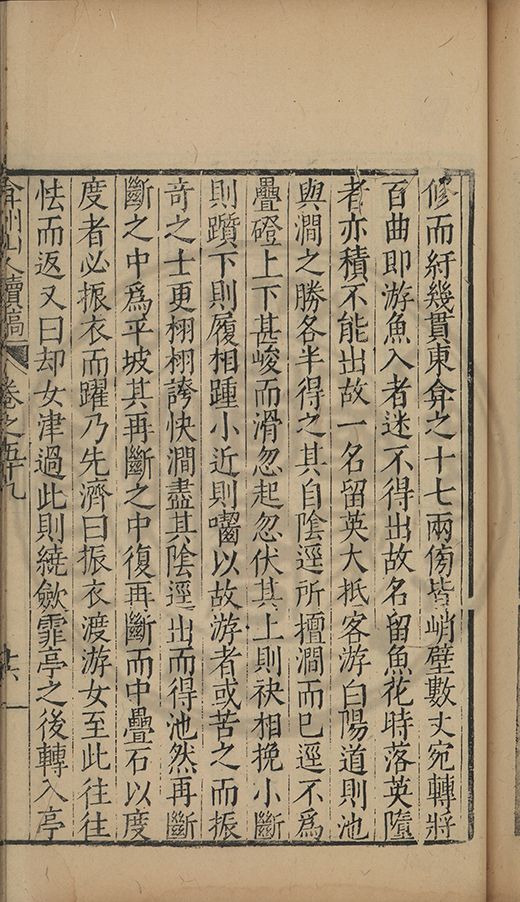 修而紆幾貫東弇之十七兩傍皆峭壁數丈宛轉將
百曲即游魚入者迷不得出故名留魚花時落英墮
者亦積不能出故一名留英大抵客游白陽道則池
與澗之勝各半得之其自陰逕所擅澗而已逕不爲
疊磴上下甚峻而滑忽起忽伏其上則袂相挽小斷
則躓下則履相踵小近則囓以故游者或苦之而振
奇之士更栩栩誇快澗盡其陰逕出而得池然再斷
斷之中爲平坡其再斷之中復再斷而中疊石以度
度者必振衣而躍乃先濟曰振衣渡游女至此往往
怯而返又曰却女津過此則繞歛霏亭之後轉入亭
弇州山人續稿 卷之五十九 十六